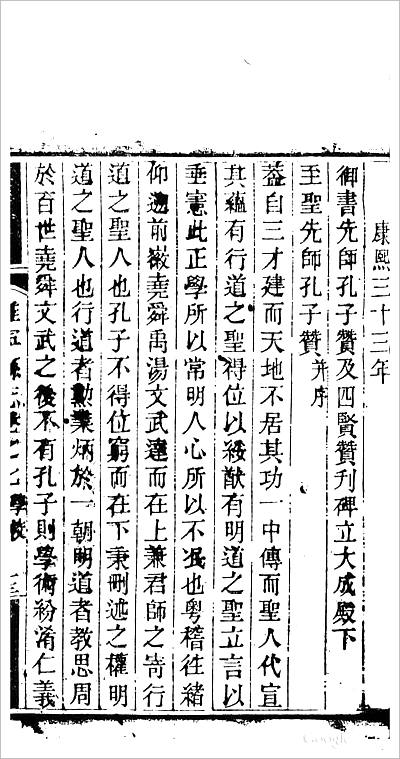 康熙三十三年
御書先師孔子贊及四賢贊刋碑立大成殿下
至聖先師孔子贊并序
蓋自三才建而天地不居其功一中傳而聖人代宣
其蘊有行道之聖得位以綏猷有明道之聖立言以
垂憲此正學所以常明人心所以不泯也粵稽往緒
仰遡前徽堯舜禹湯文武達而在上兼君師之寄行
道之聖人也孔子不得位窮而在下秉刪述之權明
道之聖人也行道者勲業炳於一朝明道者教思周
於百世堯舜文武之後不有孔子則學術紛淆仁義
縣志卷 學校
Google